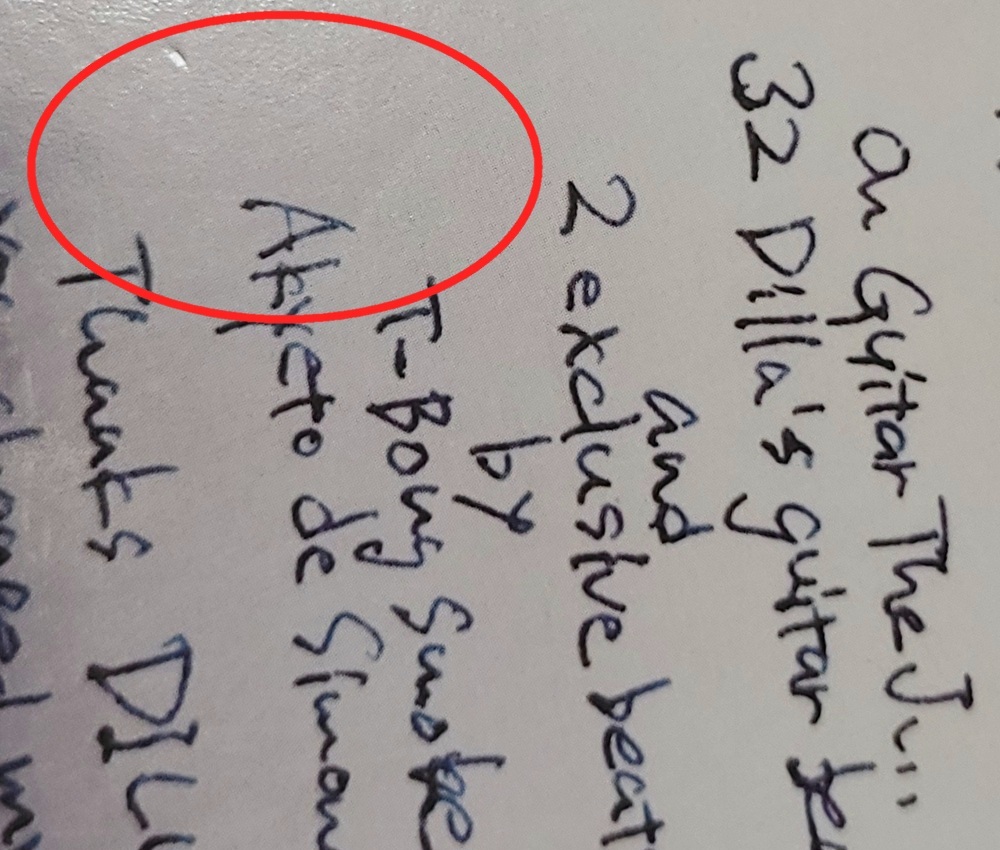 On Guitar The J...
32 Dilla's guitar
and
2 exclusive beat
by
T-Bony Smoke
de Simon
Thanks DIL